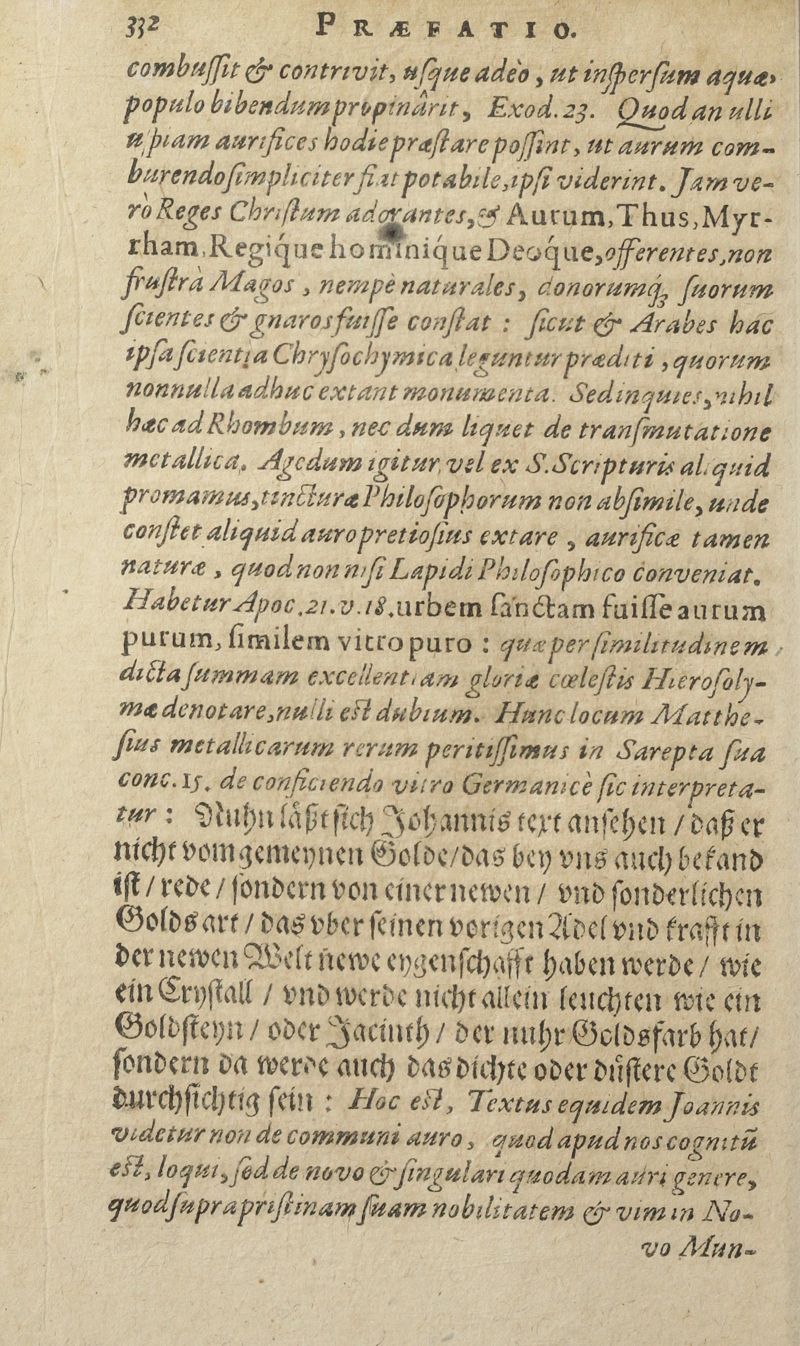 332 PRÆFATIO.
combuſſit & contrivit, uſque adeò, ut inſperſum aquæ,
populo bibendum propinârit, Exod. 23. Quod an ulli
uſpiam aurifices hodie præſtare poſſint, ut aurum com-
burendo ſimpliciter fiat potabile, ipſi viderint. Jam ve-
rò Reges Chriſtum adorantes, & Aurum, Thus, Myr-
rham, Regíque hominique Deoque, offerentes, non
fruſtrà Magos, nempè naturales, donorumq; ſuorum
ſcientes & gnaros fuiſſe conſtat : ſicut & Arabes hac
ipſa ſcientia Chryſochymica leguntur præditi, quorum
nonnulla adhuc extant monumenta. Sed inquies, nihil
hæc ad Rhombum, nec dum liquet de tranſmutatione
metallica. Agedum igitur vel ex S. Scripturis aliquid
promamus, tincturæ Philoſophorum non abſimile, unde
conſtet aliquid auro pretioſius extare, aurificæ tamen
naturæ, quod non niſi Lapidi Philoſophico conveniat.
Habetur Apoc. 21. v. 18. urbem ſanctam fuiſſe aurum
purum, ſimilem vitro puro : quæ per ſimilitudinem
dicta ſummam excellentiam gloriæ cœleſtis Hieroſoly-
mæ denotare, nulli eſt dubium. Hunc locum Matthe-
ſius metallicarum rerum peritiſſimus in Sarepta ſua
conc. 15. de conficiendo vitro Germanicè ſic interpreta-
tur : Nuhn läßt ſich Johannis text anſehen / daß er
nicht vom gemeynen Golde / das bey vns auch bekand
iſt / rede / ſondern von einer newen / vnd ſonderlichen
Golds art / das vber ſeinen vorigen Adel vnd krafft in
der newen Welt newe eygenſchafft haben werde / wie
ein Cryſtall / vnd werde nicht allein leuchten wie ein
Goldſteyn / oder Jacinth / der nuhr Goldsfarb hat /
ſondern da werde auch das dichte oder düſtere Goldt
durchſichtig ſein : Hoc eſt, Textus equidem Joannis
videtur non de communi auro, quod apud nos cognitū
eſt, loqui, ſed de novo & ſingulari quodam auri genere,
quod ſupra priſtinam ſuam nobilitatem & vim in No-
vo Mun-